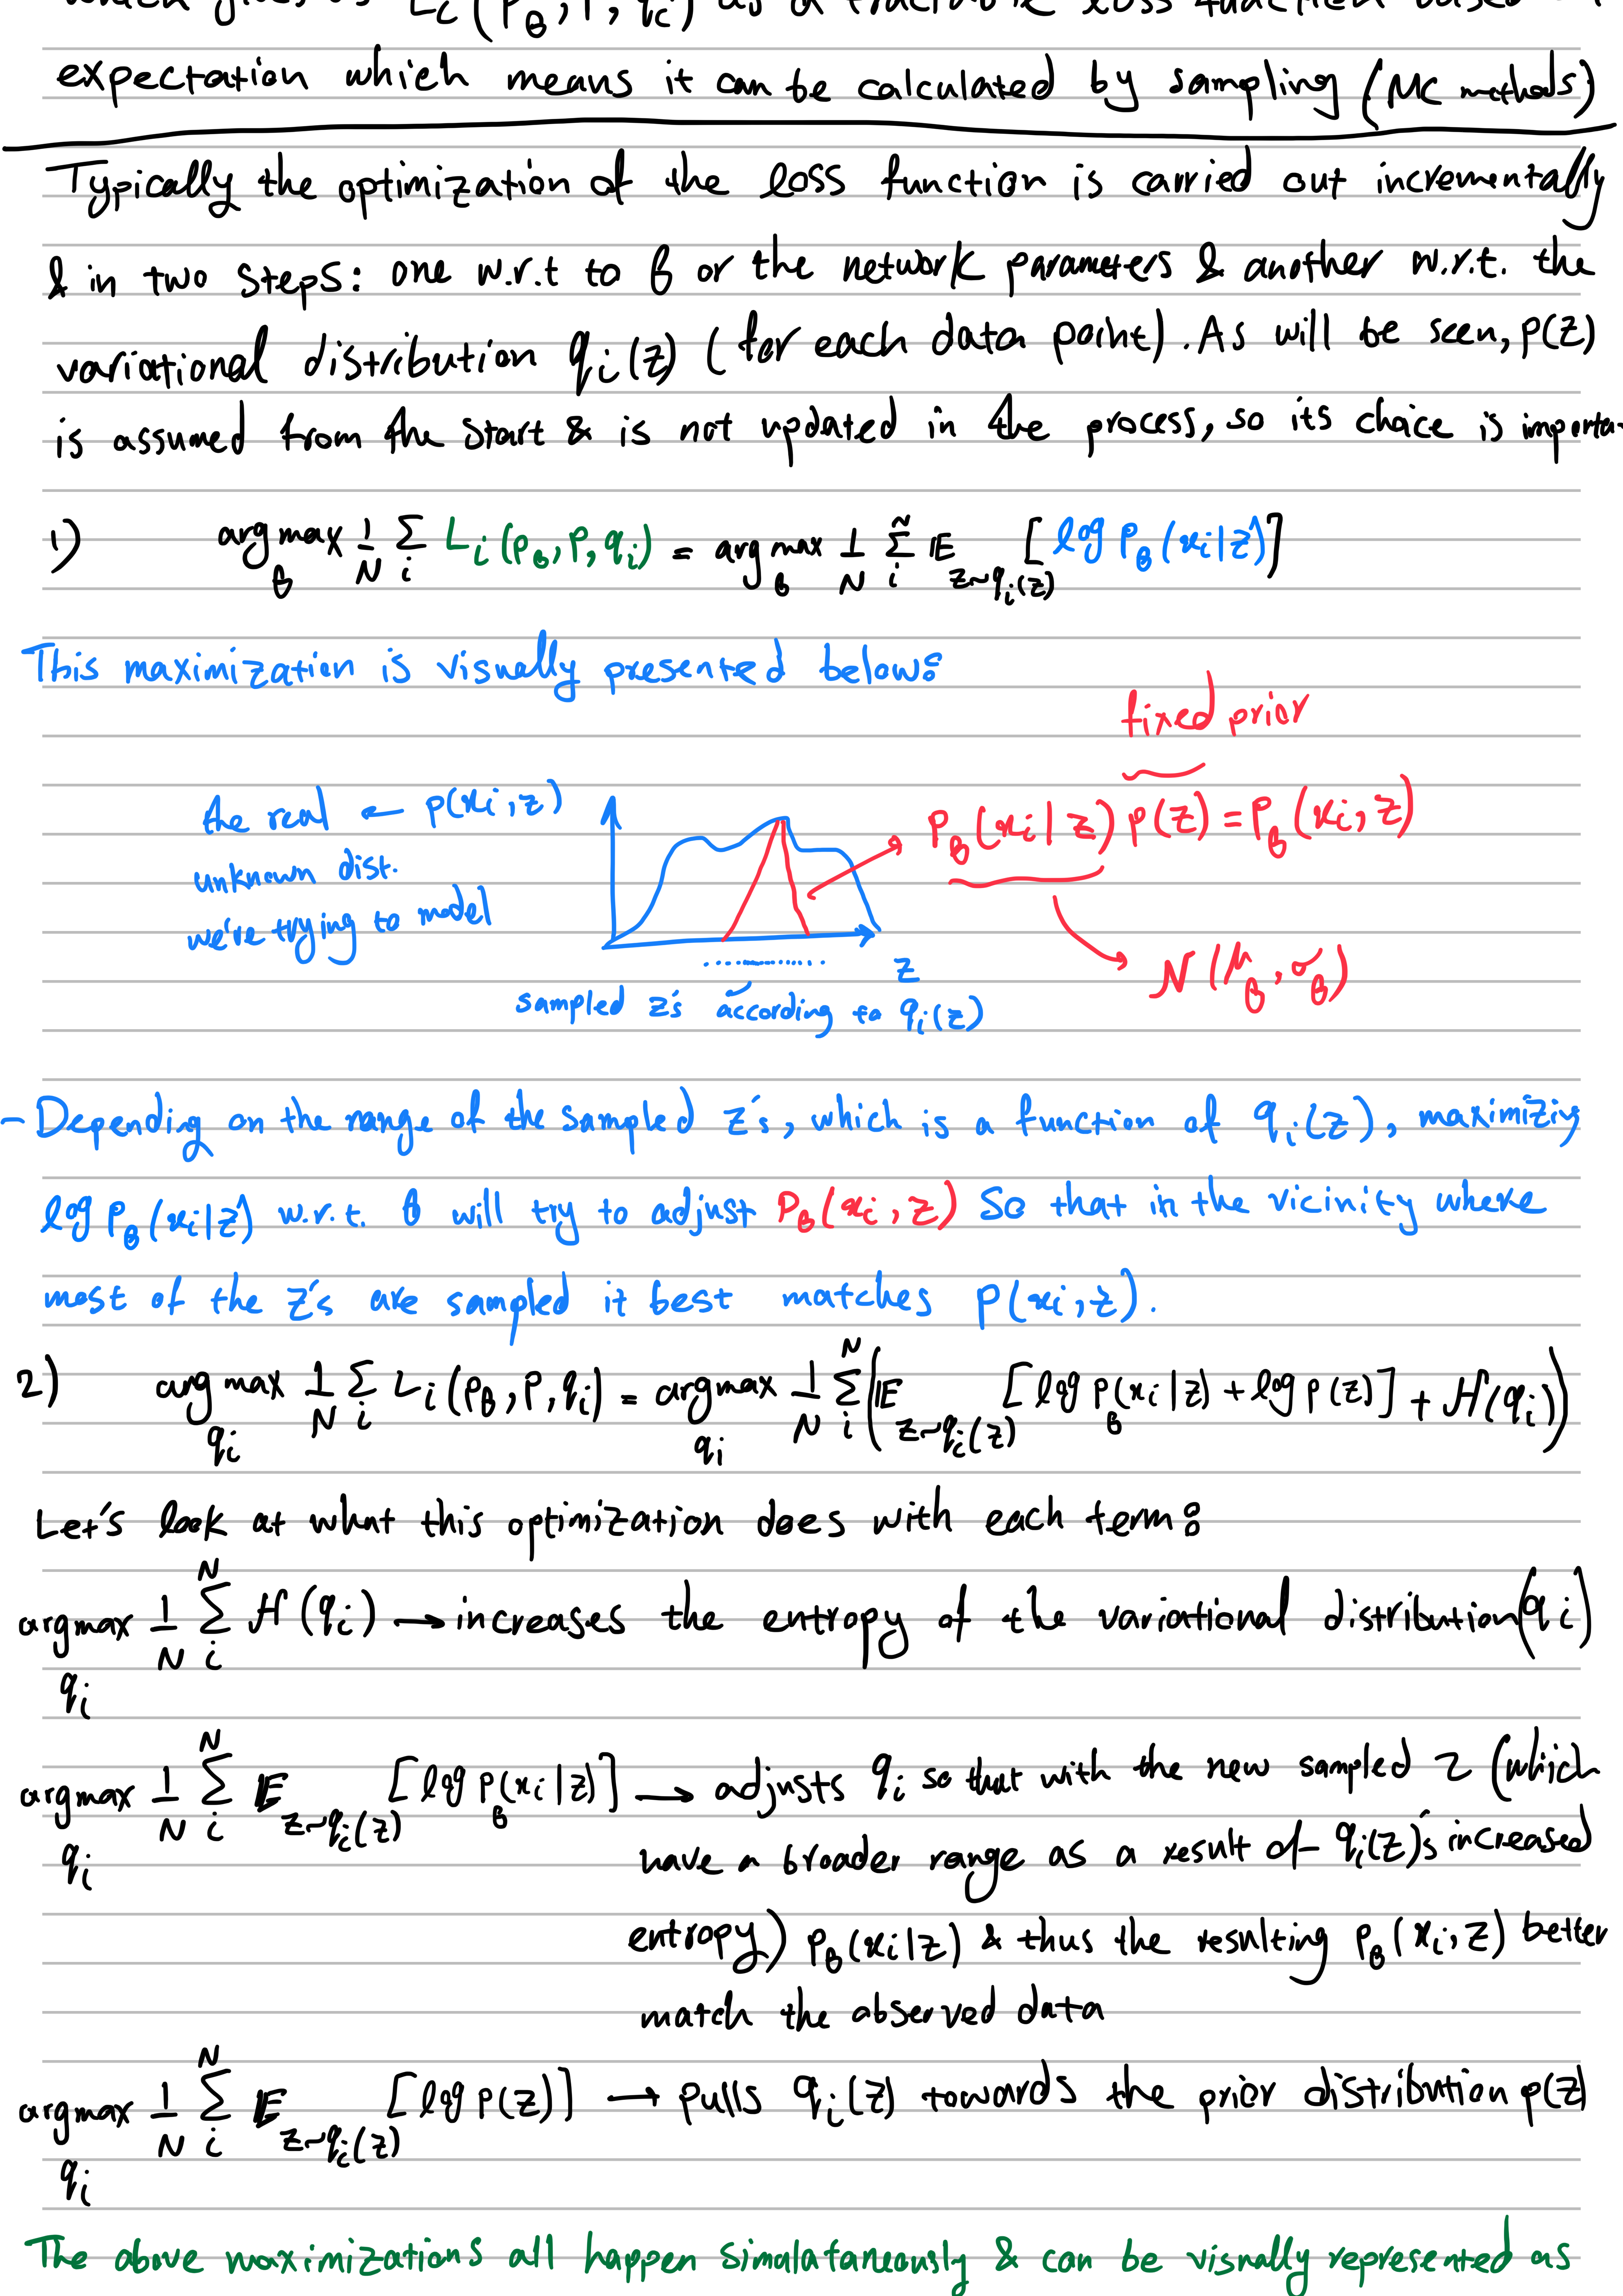 L_i(p_θ, p, q_i) as a tractable loss function based
expectation which means it can be calculated by sampling (MC methods)
Typically the optimization of the loss function is carried out incrementally
& in two steps: one w.r.t to θ or the network parameters & another w.r.t. the
variational distribution q_i(z) (for each data point). As will be seen, p(z)
is assumed from the start & is not updated in the process, so its choice is importa
1) argmax_θ 1/N Σ_i L_i(p_θ, p, q_i) = argmax_θ 1/N Σ_i^N E_{z~q_i(z)} [log p_θ(x_i|z)]
This maximization is visually presented below:
fixed prior
the real ← p(x_i, z)
unknown dist.
we're trying to model
p_θ(x_i|z) p(z) = p_θ(x_i, z)
N(μ_θ, σ_θ)
z
sampled z's according to q_i(z)
- Depending on the range of the sampled z's, which is a function of q_i(z), maximizing
log p_θ(x_i|z) w.r.t. θ will try to adjust p_θ(x_i, z) so that in the vicinity where
most of the z's are sampled it best matches p(x_i, z).
2) argmax_{q_i} 1/N Σ_i L_i(p_θ, p, q_i) = argmax_{q_i} 1/N Σ_i^N (E_{z~q_i(z)} [log p_θ(x_i|z) + log p(z)] + H(q_i))
Let's look at what this optimization does with each term:
argmax_{q_i} 1/N Σ_i^N H(q_i) → increases the entropy of the variational distribution (q_i)
argmax_{q_i} 1/N Σ_i^N E_{z~q_i(z)} [log p_θ(x_i|z)] → adjusts q_i so that with the new sampled z (which
have a broader range as a result of q_i(z)'s increased
entropy) p_θ(x_i|z) & thus the resulting p_θ(x_i, z) better
match the observed data
argmax_{q_i} 1/N Σ_i^N E_{z~q_i(z)} [log p(z)] → pulls q_i(z) towards the prior distribution p(z)
The above maximizations all happen simalataneously & can be visually represented as